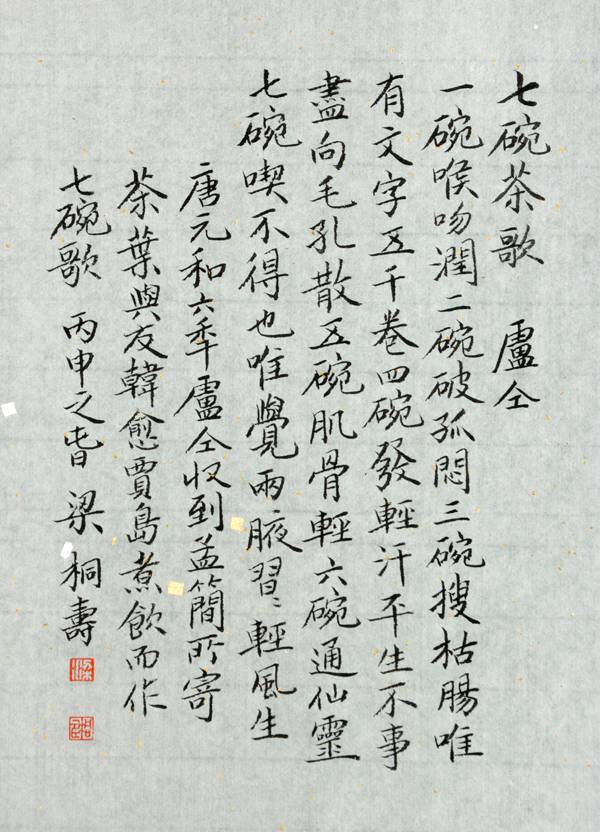 七碗茶歌 盧仝
一碗喉吻潤二碗破孤悶三碗搜枯腸唯
有文字五千卷四碗發輕汗平生不事
盡向毛孔散五碗肌骨輕六碗通仙靈
七碗喫不得也唯覺兩腋習〻輕風生
唐元和六年盧仝收到孟簡所寄
茶葉與友韓愈賈島煮飲而作
七碗歌 丙申之春 梁桐壽